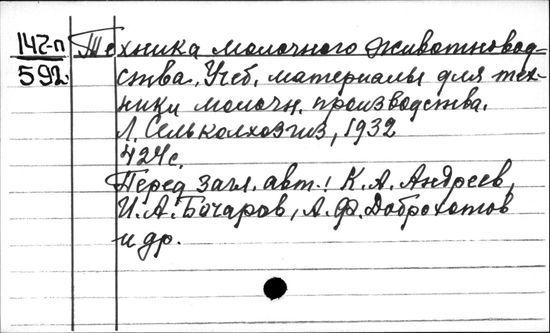 142-п
592
Техника молочного животновод-
ства. Учеб. материалы для тех-
ники молочн. производства.
Л. Сельколхозгиз, 1932
424с.
Перед загл. авт.: К.А. Андреев,
И.А. Бочаров, А.Ф. Доброхотов
и др.